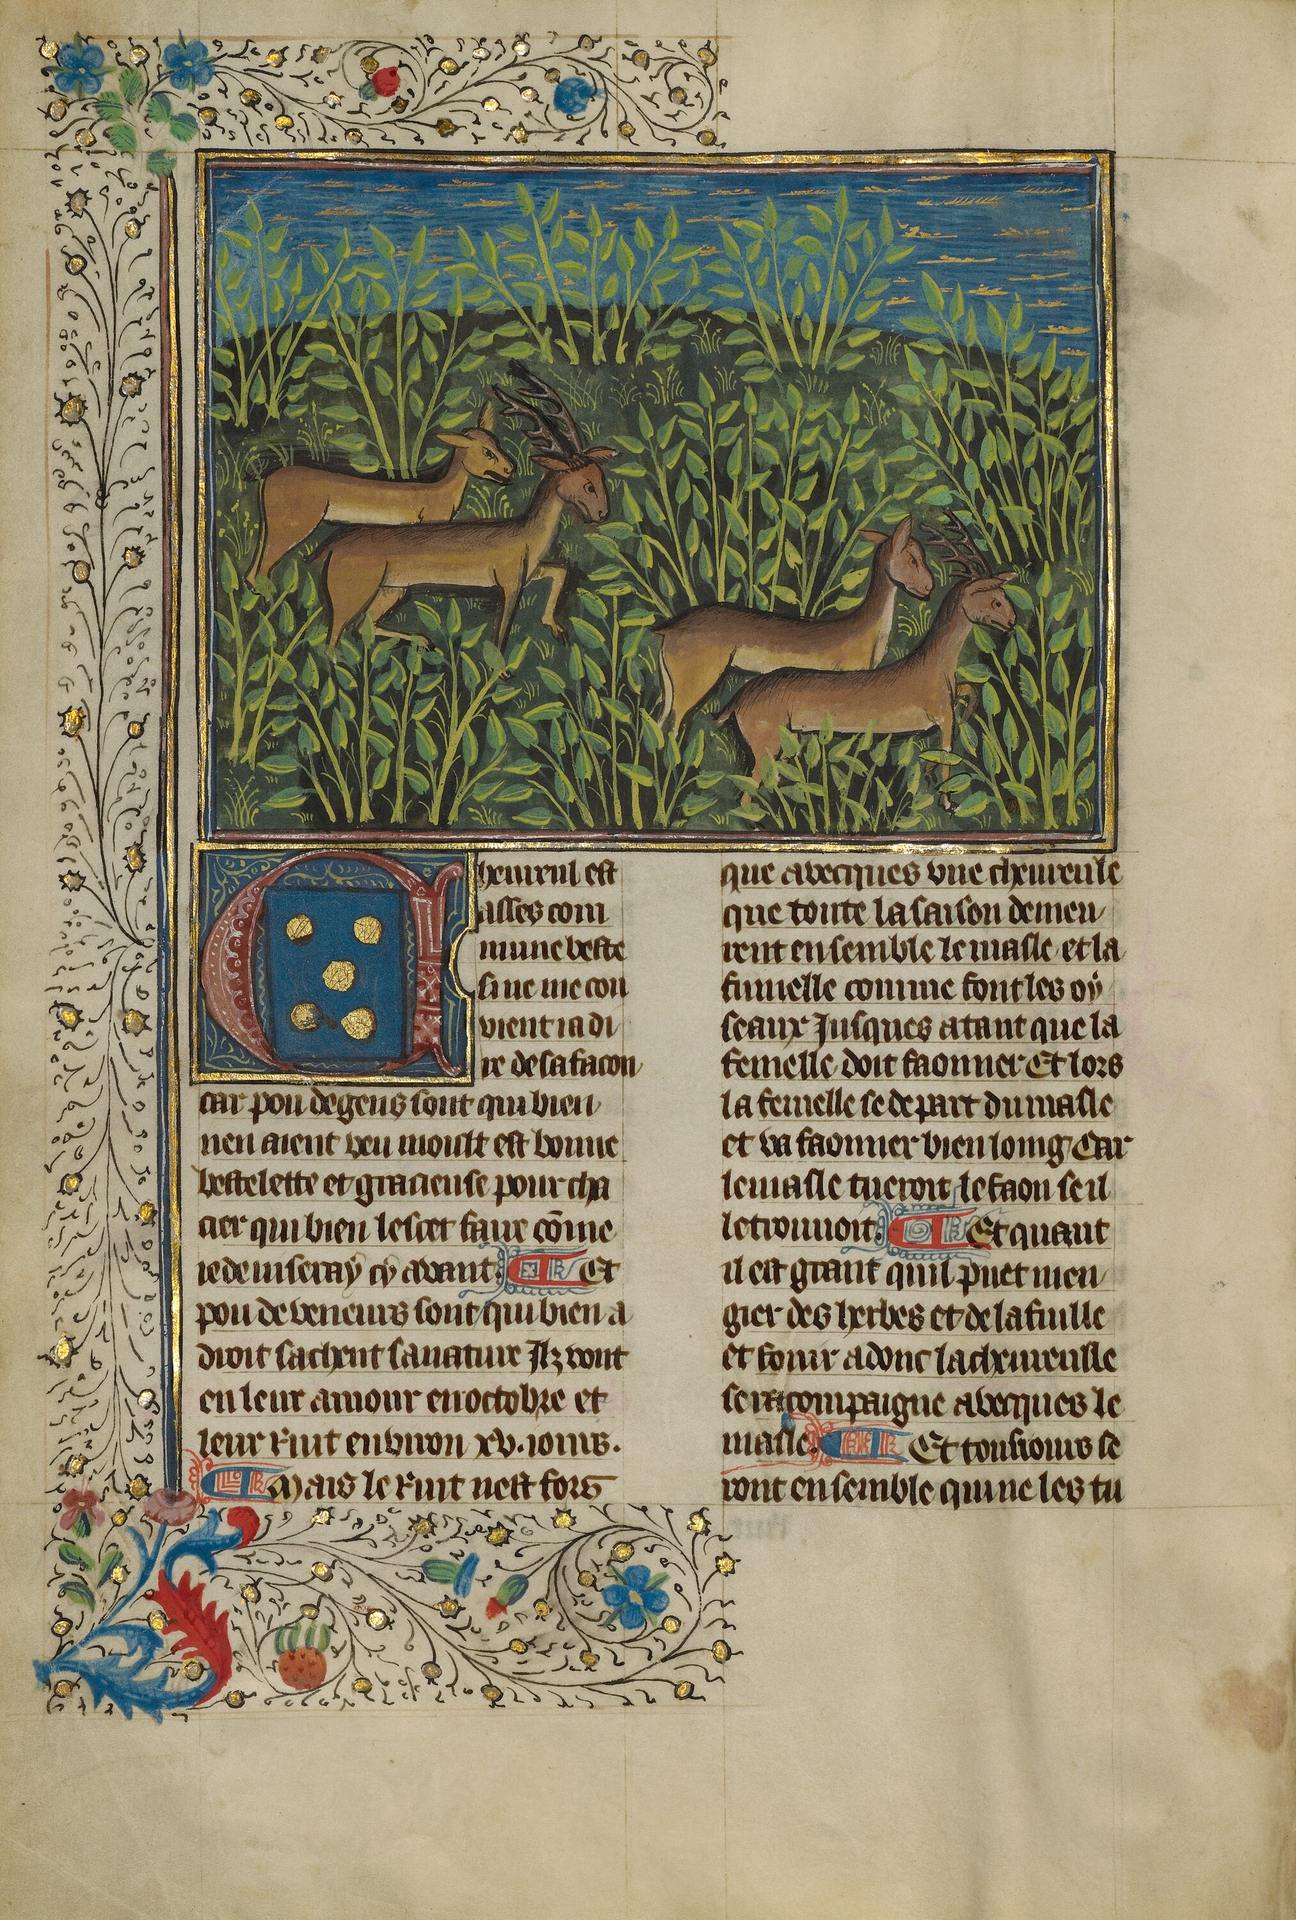 Cheureul est
asses com
mune beste
si ne me con
vient ia di
re de sa facon
car pou de gens sont qui bien
nen aient veu moult est bonne
bestelette et gracieuse pour cha
cier qui bien lescet faire cõme
ie deuiseray cy avant. Et
pou de veneurs sont qui bien a
droit sachent sa nature Ilz vont
en leur amour en octobre et
leur Ruit environ xv. iours.
Mais le Ruit nest fors
que avecques vne cheureule
que toute la saison demeu
rent ensemble le masle et la
fumelle comme font les oy
seaux Jusques atant que la
femelle doit faonner Et lors
la femelle se depart du masle
et va faonner bien loing Car
le masle tueroit le faon se il
le trouuoit. Et quant
il est grant quil puet men
gier des herbes et de la fuille
et fouir adonc la cheureulle
se racompaigne avecques le
masle. Et tousiours se
ront ensemble qui ne les tu